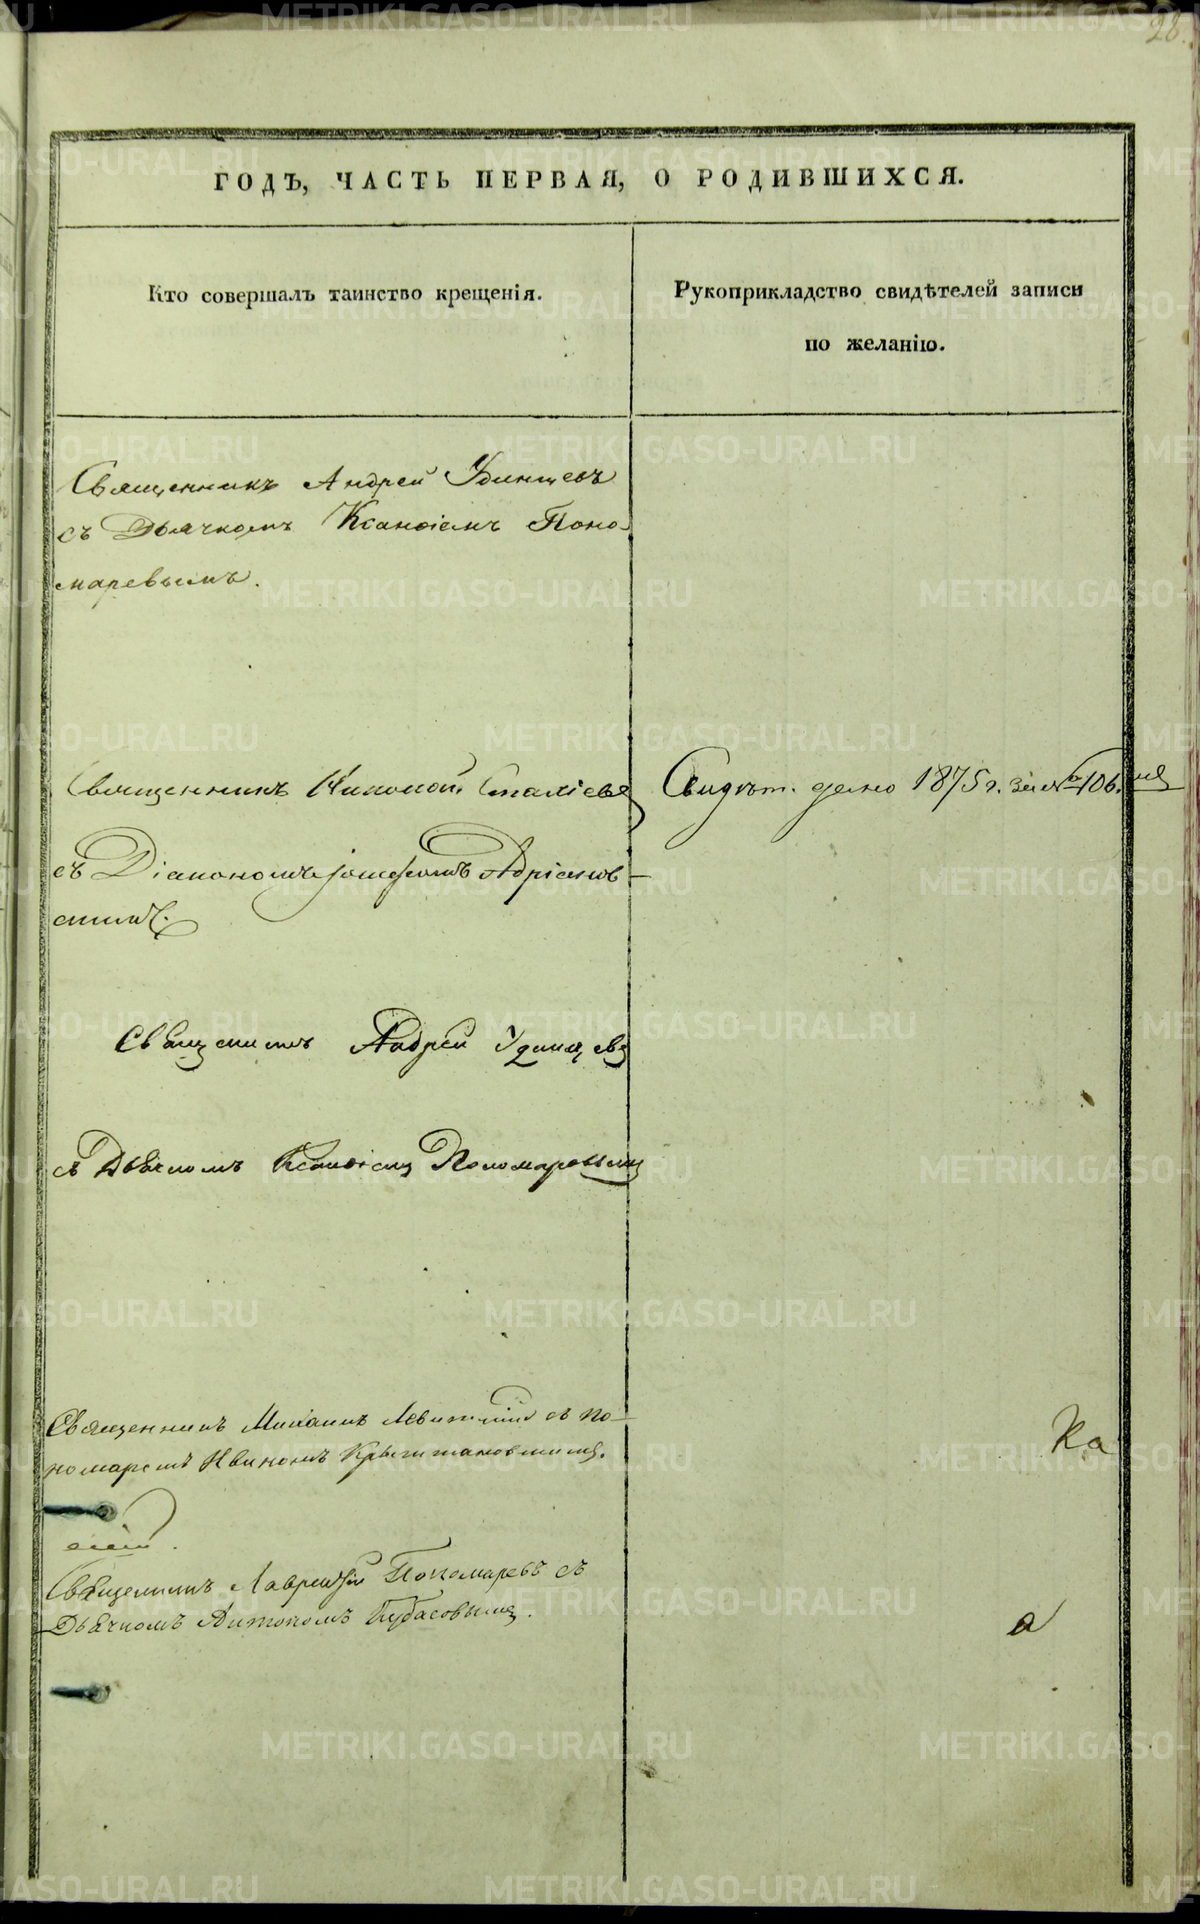 28.
ГОДЪ, ЧАСТЬ ПЕРВАЯ, О РОДИВШИХСЯ.
Кто совершалъ таинство крещенія.
Рукоприкладство свидѣтелей записи
по желанію.
Священникъ Андрей Удинцевъ
съ Дьячкомъ Ксанѳіемъ Поно-
маревымъ.
Священникъ Николай
Свидѣт. дано 1875 г. за № 106.
съ Діакономъ Іосифомъ Адріанов-
скимъ.
Священникъ Андрей Удинцевъ
съ Дьячкомъ Ксанѳіемъ Пономаревымъ
Священникъ Михаилъ Левитскій съ по-
номаремъ Крыжановскимъ.
Ка
Священникъ Лаврентій Пономаревъ съ
Дьячкомъ Антономъ Бубасовымъ.
а
METRIKI.GASO-URAL.RU